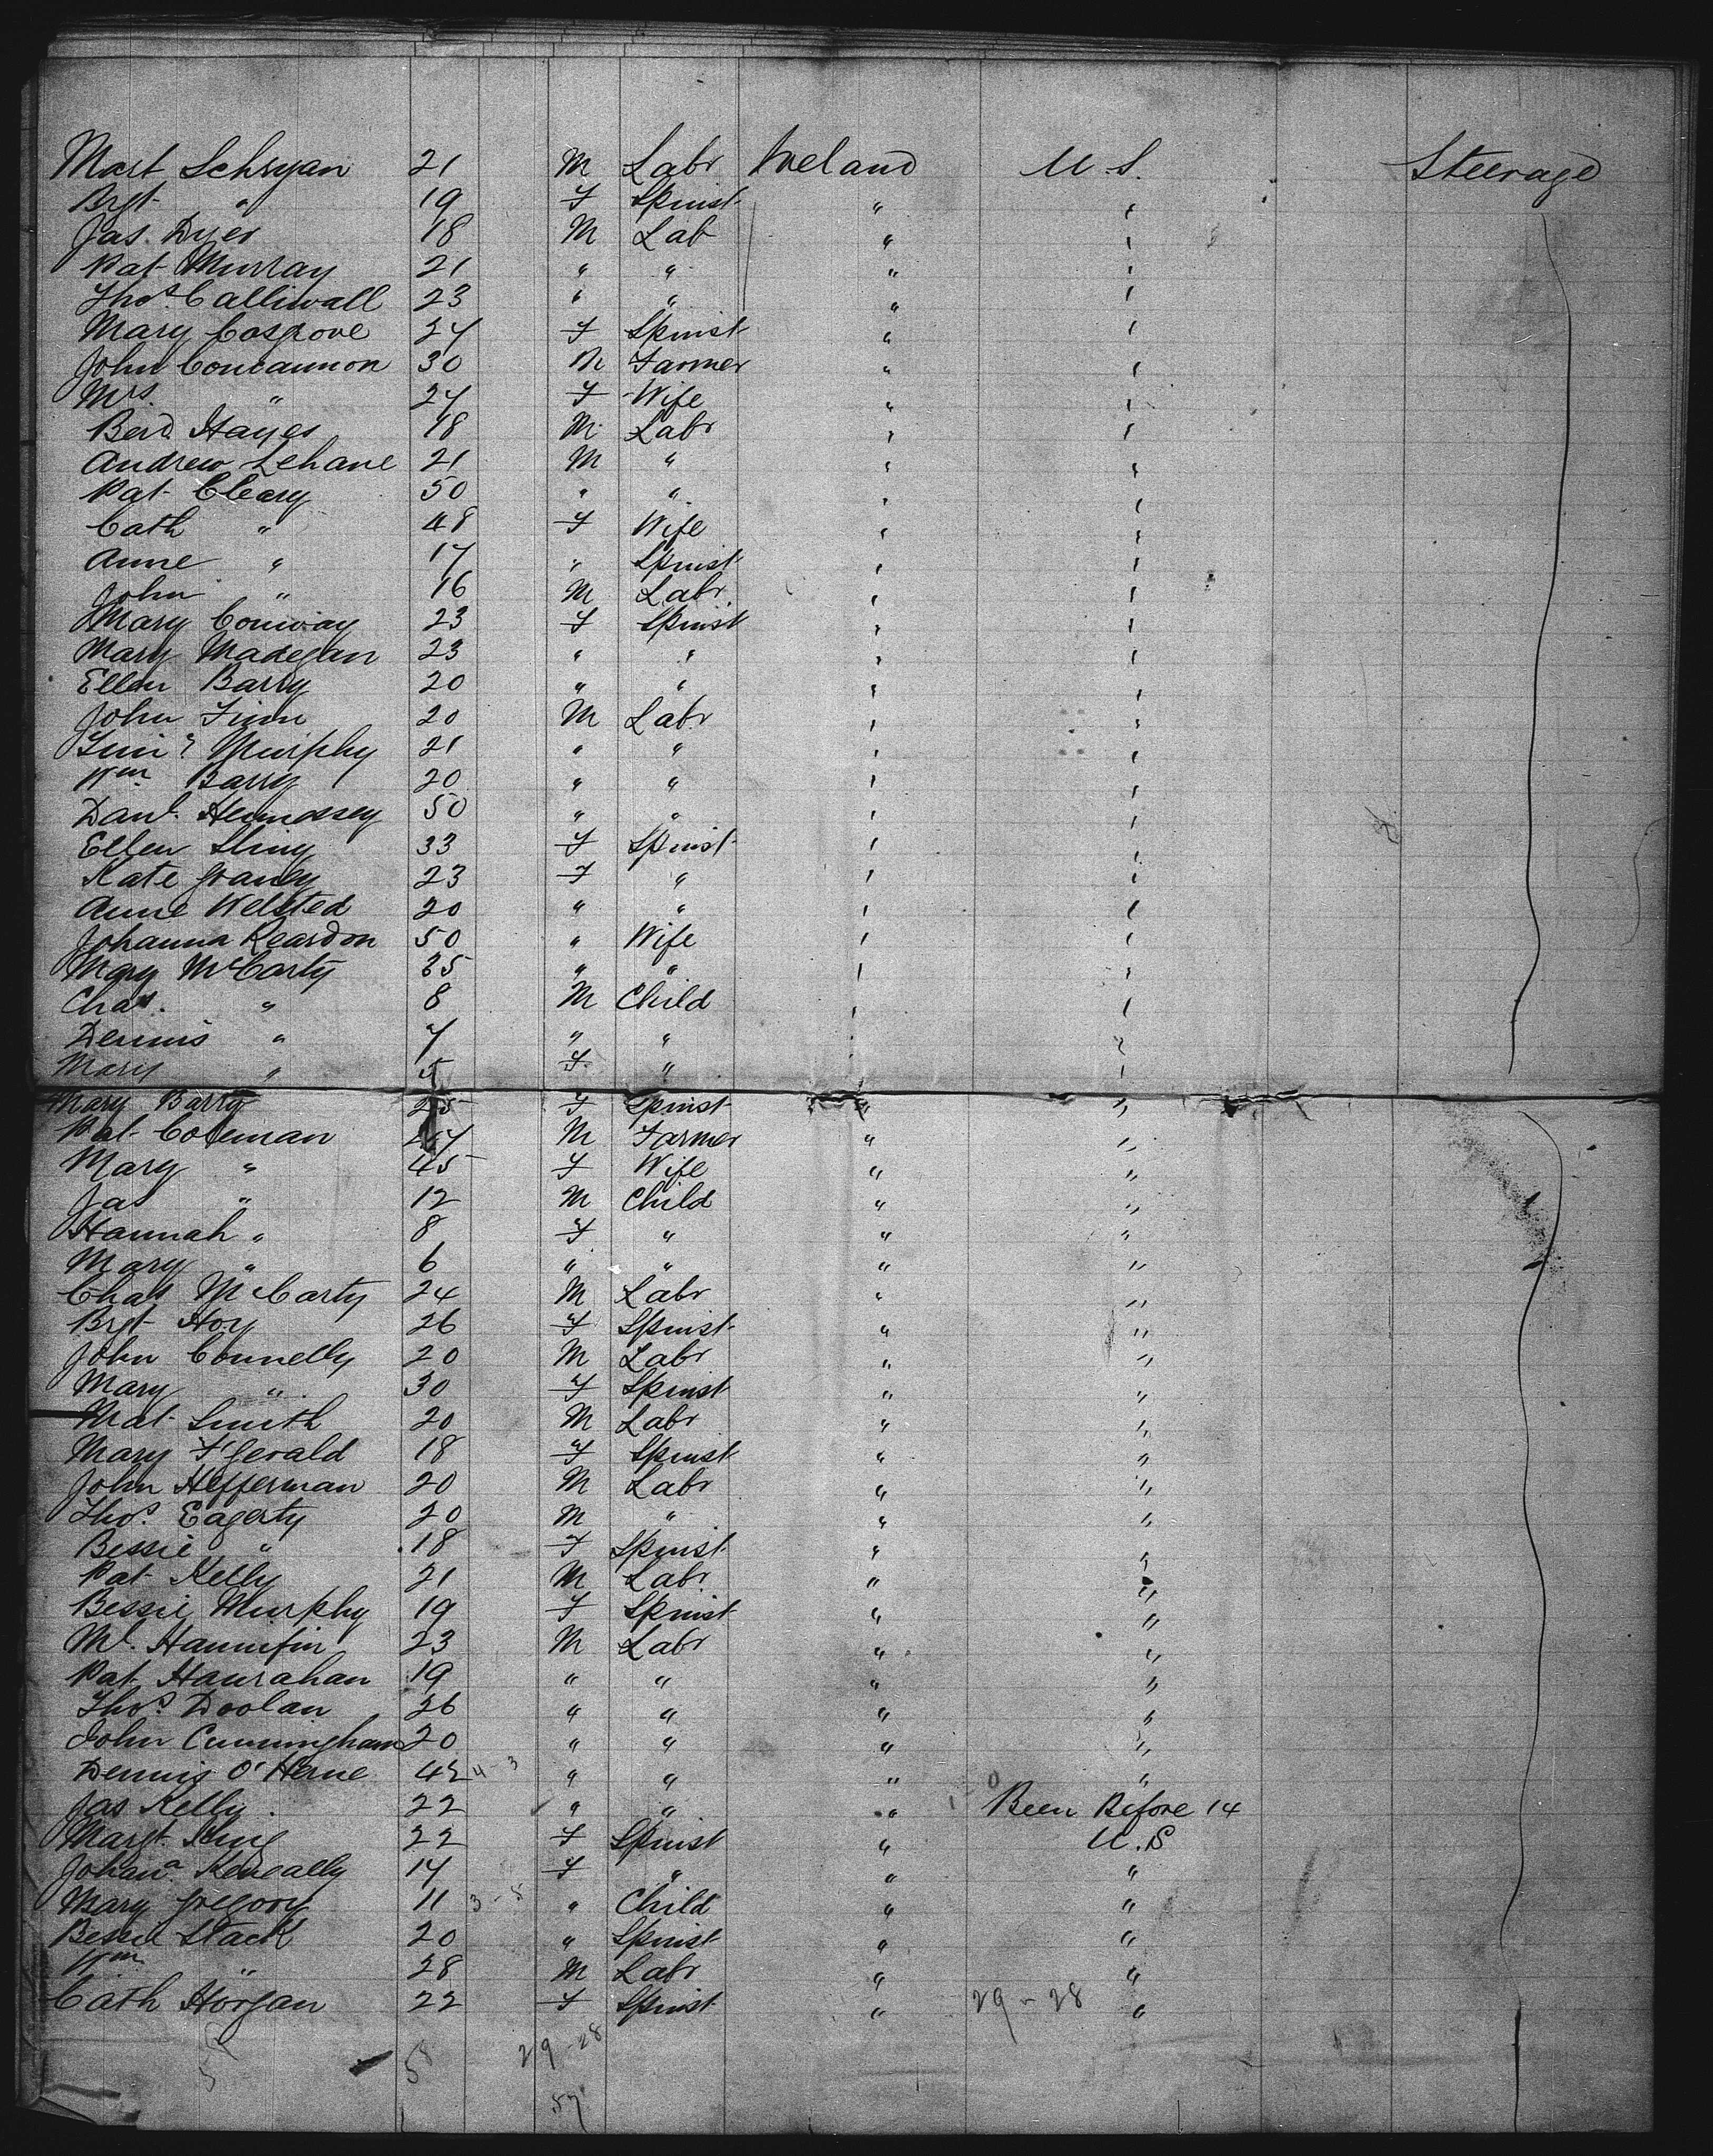 Mart Schryan 21 M Labr Ireland U.S. Steerage
Brgt " 19 F Spinst " "
Jas. Dyer 18 M Lab " "
Pat Murray 21 " " " "
Thos. Calliwall 23 " " " "
Mary Cosgrove 24 F Spinst " "
John Concannon 30 M Farmer " "
Mrs. " 24 F Wife " "
Berd. Hayes 18 M Labr " "
Andrew Lehane 21 M " " "
Pat Cleary 50 " " " "
Cath " 48 F Wife " "
Anne " 17 " Spinst " "
John " 16 M Labr " "
Mary Conway 23 F Spinst " "
Mary Madegan 23 " " " "
Ellen Barry 20 " " " "
John Finn 20 M Labr " "
Murphy 21 " " " "
Wm. Barry 20 " " " "
Danl. Hennessey 50 " " " "
Ellen 33 F Spinst " "
Kate Graney 23 F " " "
Anne Welsted 20 " " " "
Johanna Reardon 50 " Wife " "
Mary McCarty 35 " " " "
Chas. " 8 M Child " "
Dennis " 7 " " " "
Mary " 5 F " " "
Mary Barry 25 F Spinst " "
Pat Coleman 47 M Farmer " "
Mary " 45 F Wife " "
Jas " 12 M Child " "
Hannah " 8 F " " "
Mary " 6 " " " "
Chas McCarty 24 M Labr " "
Brgt Hoy 26 F Spinst " "
John Connelly 20 M Labr " "
Mary " 30 F Spinst " "
Mat Smith 20 M Labr " "
Mary F'Gerald 18 F Spinst " "
John Hefferman 20 M Labr " "
Thos. Eagerty 20 M " " "
Bessie " 18 F Spinst " "
Pat Kelly 21 M Labr " "
Bessie Murphy 19 F Spinst " "
Ml. Hannifin 23 M Labr " "
Pat Hanrahan 19 " " " "
Thos. Doolan 26 " " " "
John Cunningham 20 " " " "
Dennis O'Herne 42 4-3 " " " "
Jas Kelly. 22 " " " Been Before 14
Margt. King 22 F Spinst " U.S
Johana. Keneally 14 F " " "
Mary Gregory 11 3-8 " Child " "
Bessie Stack 20 " Spinst " "
Wm " 28 M Labr " "
Cath Horgan 22 F Spinst " 29-28 "
58 58 29-28
57